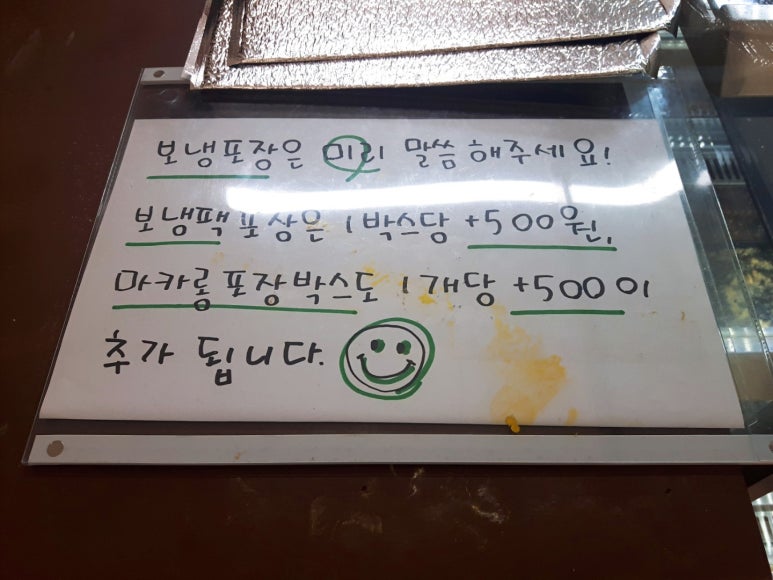 보냉포장은 미리 말씀해주세요!
보냉팩포장은 1박스당 +500원,
마카롱포장박스도 1개당 +500이
추가 됩니다.